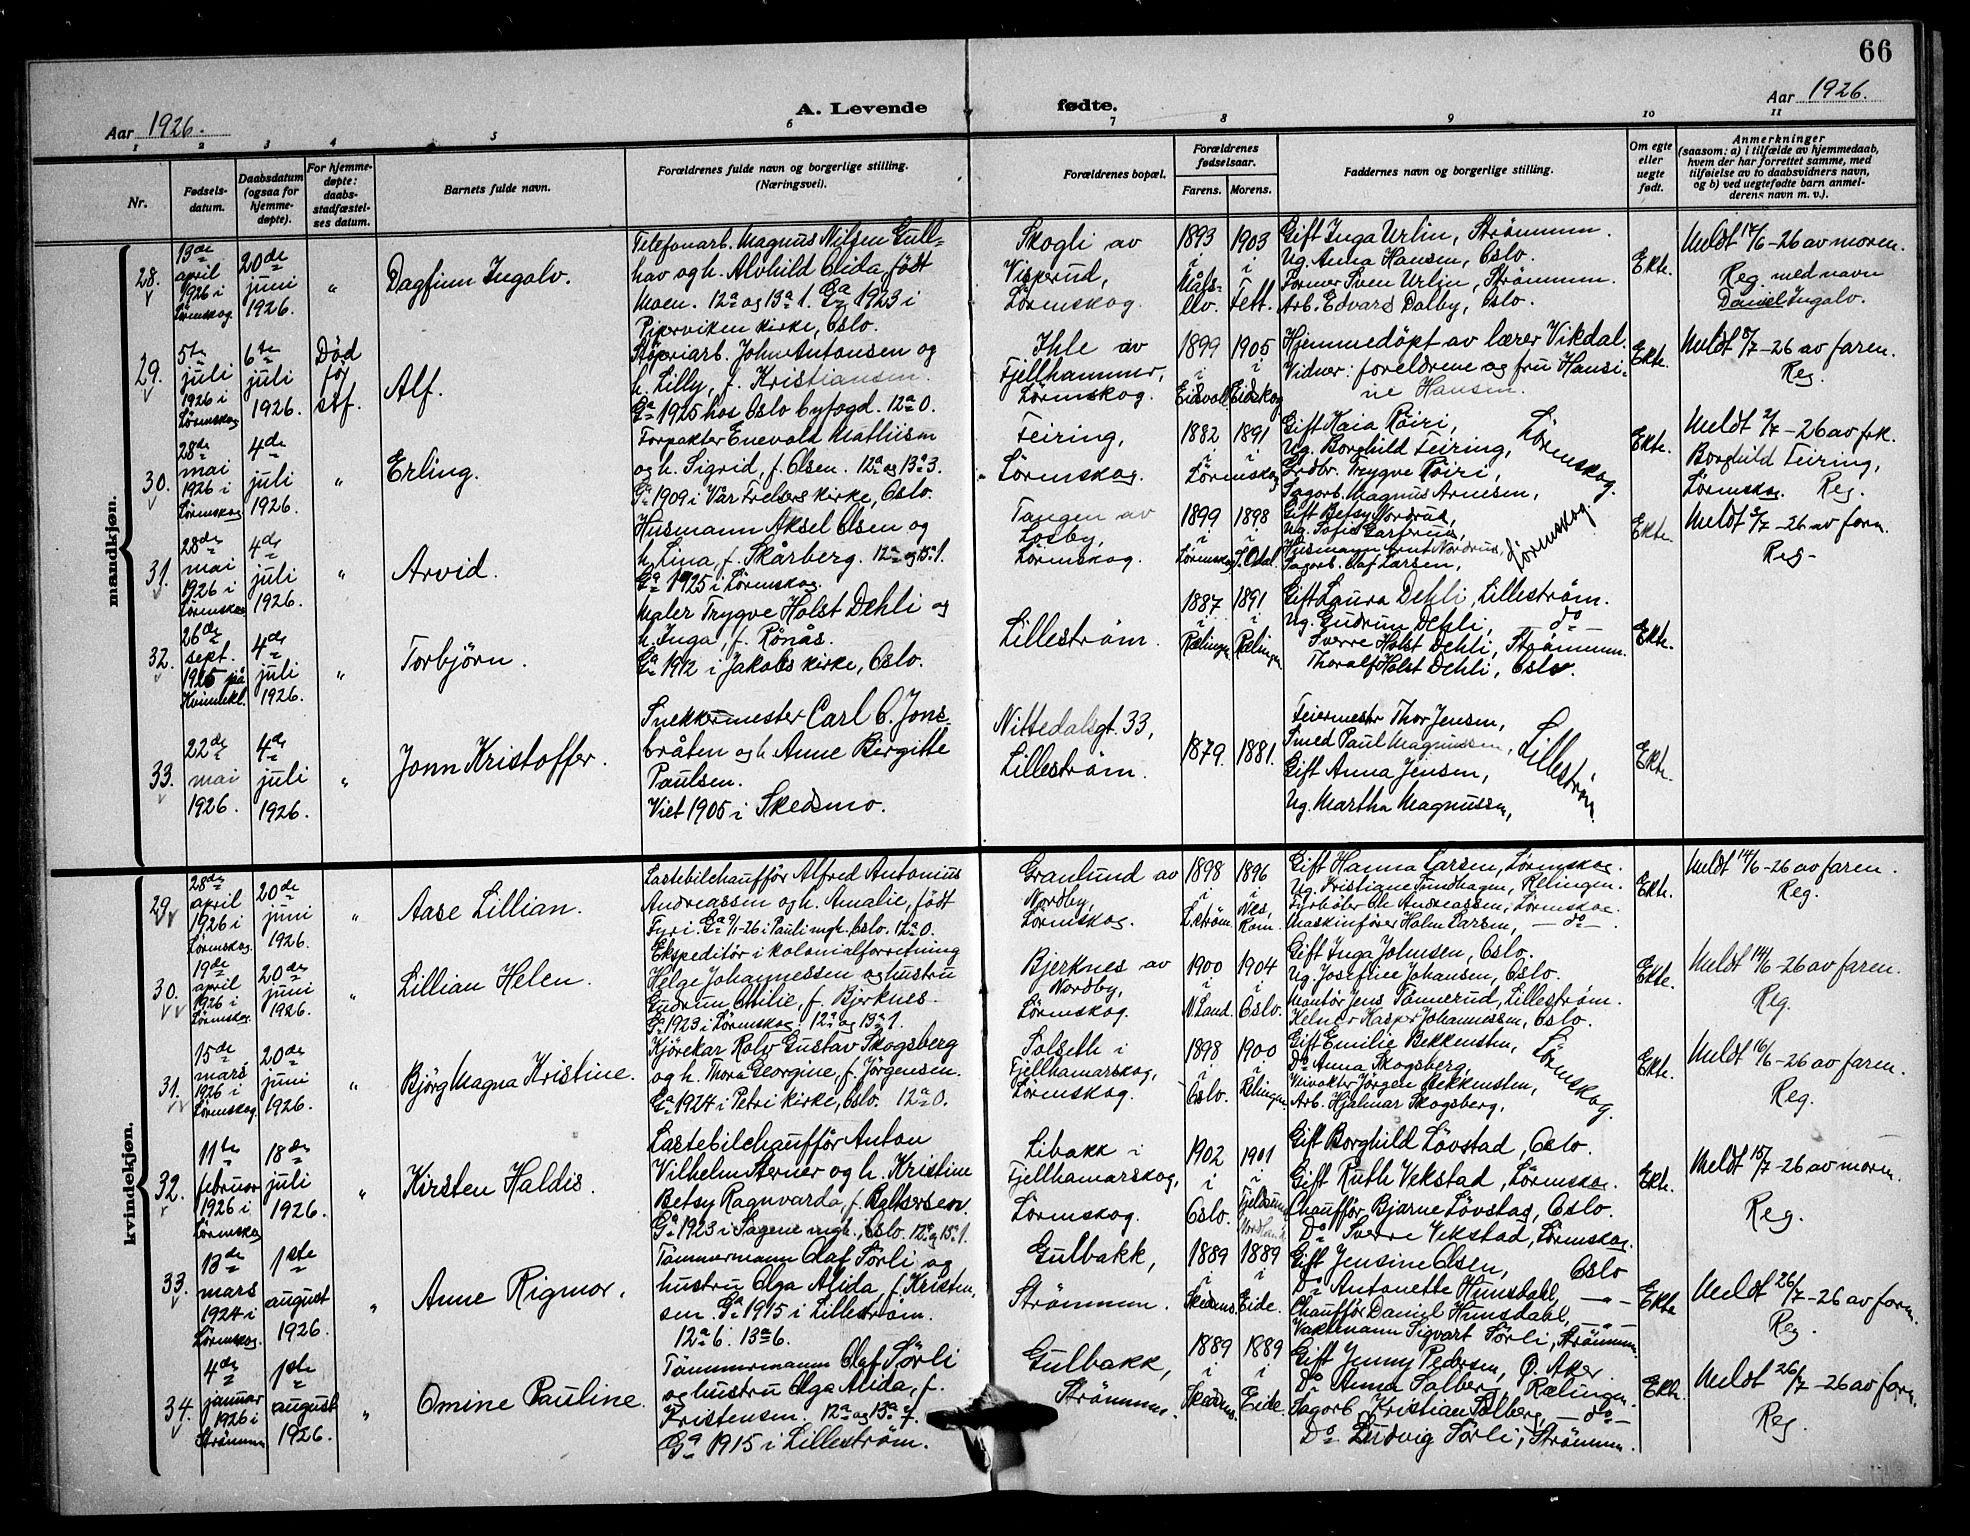 66
Aar 1926.
A. Levende fødte.
Aar 1926.
1 2 3 4 5 6 7 8 9 10 11
Nr.
Fødsels-
datum.
Daabsdatum
(ogsaa for
hjemme-
døpte).
For hjemme-
døpte:
daabs-
stadfæstel-
ses datum.
Barnets fulde navn.
Forældrenes fulde navn og borgerlige stilling.
(Næringsvei).
Forældrenes bopæl.
Forældrenes
fødselsaar.
Farens. Morens.
Faddernes navn og borgerlige stilling.
Om egte
eller
uegte
født.
Anmerkninger
(saasom: a) i tilfælde av hjemmedaab,
hvem der har forrettet samme, med
tilføielse av to daabsvidners navn,
og b) ved uegtefødte barn anmel-
derens navn m. v.).
mandkjøn.
28.
13de
april
1926 i
Lørenskog.
20de
juni
1926.
"
Dagfinn Ingolv.
Telefonarb. Magnus Nilsen Gull-
hav og h. Alvhild Alida, født
Moen. 12a og 13a 1. Ga 1923 i
Piperviken kirke, Oslo.
Skogli av
Visperud,
Lørenskog.
1893
i
Måls-
elv.
1903
i
Fett.
Gift Inga Urlin, Strømmen.
Ug. Anna Hansen, Oslo.
Former Sven Urlin, Strømmen.
Arb. Edvard Dalby, Oslo.
Ekte.
Meldt 14/6-26 av moren.
Reg. med navn
Daniel Ingolv.
29.
5te
juli
1926 i
Lørenskog
6te
juli
1926.
Død
før
stf.
Alf.
Støperiarb. John Antonsen og
h. Lilly, f. Kristiansen.
Ga 1925 hos Oslo byfogd. 12a 0.
Ihle av
Fjellhammer,
Lørenskog.
1899
i
Eidsvoll
1905
i
Eidskog
Hjemmedøpt av lærer Vikdal.
Vidner: foreldrene og fru Hansi-
ne Hansen.
Ekte.
Meldt 8/7-26 av faren.
Reg.
30.
28de
mai
1926 i
Lørenskog
4de
juli
1926.
"
Erling.
Forpakter Enevald Mathisen
og h. Sigrid, f. Olsen. 12a og 13a 3.
Ga 1909 i Vår Frelsers kirke, Oslo.
Feiring,
Lørenskog.
1882
i
1891
i
Lørenskog
Gift Kaia Røiri,
Ug. Borghild Feiring,
Grdbr. Trygve Røiri,
Sagarb. Magnus Arnesen,
Lørenskog.
Ekte.
Meldt 2/7-26 av frk.
Borghild Feiring,
Lørenskog. Reg.
31.
28de
mai
1926 i
Lørenskog
4de
juli
1926.
"
Arvid.
Husmann Aksel Olsen og
h. Lina, f. Skårberg. 12a og 13a 1.
Ga 1925 i Lørenskog.
Tangen av
Losby,
Lørenskog.
1899
i
Lørenskog
1898
i
S. Odal.
Gift Betsy Nordrus,
Ug. Sofie
Husmann Nordrus,
Sagarb. Olaf Larsen,
Lørenskog
Ekte.
Meldt 3/7-26 av faren.
Reg-
32.
26de
sept.
1925 på
Kvinnekl.
4de
juli
1926.
"
Torbjørn.
Maler Trygve Holst Dehli og
h. Inga, f. Rønås.
Ga 1912 i Jakobs kirke, Oslo.
Lillestrøm.
1887
i
Rælingen
1891
i
Rælingen
Gift Laura Dehli, Lillestrøm.
Ug. Gudrun Dehli, - do -
Sverre Holst Dehli, Strømmen.
Thoralf Holst Dehli, Oslo.
Ekte.
33.
22de
mai
1926.
4de
juli
1926.
"
Jonn Kristoffer.
Snekkermester Carl C. Jons-
bråten og h. Anne Birgitte
Paulsen.
Viet 1905 i Skedsmo.
Nittedalsgt. 33,
Lillestrøm.
1879. 1881.
Feiermestr Thor Jensen,
Smed Paul Magnussen,
Gift Anna Jensen,
Ug. Martha Magnussen,
Lillestrøm.
Ekte.
kvindekjøn.
29.
28de
april
1926 i
Lørenskog.
20de
juni
1926.
"
Aase Lillian.
Lastebilchauffør Alfred Antonius
Andreassen og h. Amalie, født
Fyri. Ga 9/1-26 i Pauli mgh. Oslo. 12a 0.
Granlund av
Nordby,
Lørenskog.
1898
i
L.strøm.
1896
i
Nes,
Rom.
Gift Hanna Larsen, Lørenskog.
Ug. Kristiane Sundhagen, Rælingen.
Fyrbøter Ole Andreassen, Lørenskog.
Maskinfører Holm Larsen, - do -
Ekte.
Meldt 14/6-26 av faren.
Reg.
30.
19de
april
1926 i
Lørenskog.
20de
juni
1926.
"
Lillian Helen.
Ekspeditør i kolonialforretning
Helge Johannessen og hustru
Gudrun Otilie, f. Bjerknes.
Ga 1923 i Lørenskog. 12a og 13a 1.
Bjerknes av
Nordby,
Lørenskog.
1900
i
N.Land.
1904
i
Oslo.
Gift Inga Johnsen, Oslo.
Ug. Josefine Johansen, Oslo.
Montør Jens Tannerud, Lillestrøm.
Kelner Kasper Johannessen, Oslo.
Ekte.
Meldt 14/6-26 av faren.
Reg.
31.
15de
mars
1926 i
Lørenskog
20de
juni
1926.
"
Bjørg Magna Kristine.
Kjørekar Rolv Gustav Skogsberg
og h. Thora Georgine, f. Jørgensen.
Ga 1924 i Petri kirke, Oslo. 12a 0.
Solseth i
Fjellhamarskog,
Lørenskog.
1898
i
Oslo.
1900
i
Rælingen
Gift Emilie Bekkensten,
Do Anna Skogsberg,
Jørgen Bekkensten,
Arb. Hjalmar Skogsberg,
Lørenskog.
Ekte.
Meldt 16/6-26 av faren.
Reg.
32.
11te
februar
1926 i
Lørenskog
18de
juli
1926.
"
Kirsten Haldis.
Lastebilchauffør Anton
Vilhelm Sterner og h. Kristine
Betsy Ragnvarda, f. Baltsersen.
Ga 1923 i Sagene mgh., Oslo. 12a og 13a 1.
Libakk i
Fjellhamarskog,
Lørenskog.
1902
i
Oslo.
1901
i
Nordland
Gift Borghild Løvstad, Oslo.
Gift Ruth Vekstad, Lørenskog.
Chauffør Bjarne Løvstad, Oslo.
Do Sverre Vekstad, Lørenskog.
Ekte.
Meldt 15/7-26 av moren.
Reg.
33.
13de
mars
1924 i
Lørenskog.
1ste
august
1926.
"
Anne Rigmor.
Tømmermann Olaf Sørli og
hustru Olga Alida, f. Kristen-
sen. Ga 1915 i Lillestrøm.
12a 6. 13a 6.
Gulbakk,
Strømmen.
1889
i
Skedsmo.
1889
i
Eide.
Gift Jensine Olsen, Oslo
Do Antonette Hunsdahl, - " -
Chauffør Daniel Hunsdahl, - " -
Vaktmann Sigvart Sørli, Strømmen.
Ekte
Meldt 26/7-26 av faren.
Reg.
34.
4de
januar
1926 i
Strømmen
1ste
august
1926.
"
Omine Pauline.
Tømmermann Olaf Sørli
og hustru Olga Alida, f.
Kristensen. 12a og 13a 7.
Ga 1915 i Lillestrøm.
Gulbakk,
Strømmen.
1889
i
Skedsmo.
1889
i
Eide.
Gift Jenny Pedersen, Ø. Aker.
Do Anna Solberg, Rælingen.
Sagarb. Kristian Solberg, - do -
Do Ludvig Sørli, Strømmen.
Ekte.
Meldt 26/7-26 av faren.
Reg.